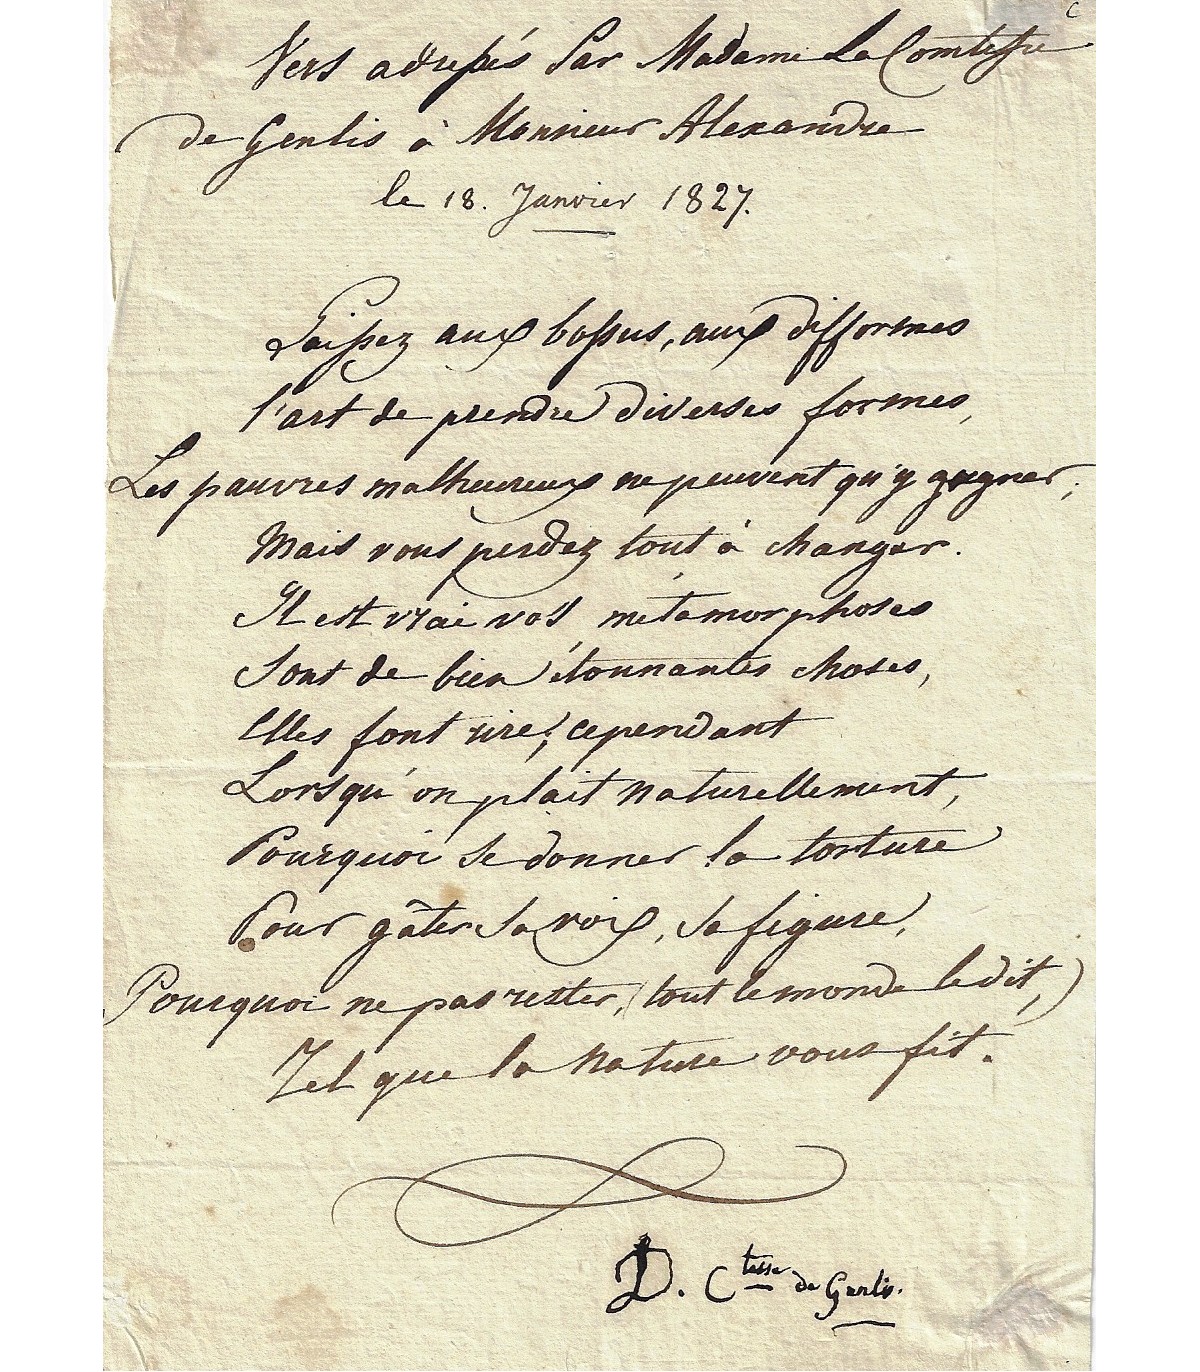 c
Vers adressés Par Madame La Comtesse
de Genlis à Monsieur Alexandre
le 18. Janvier 1827.
Laissez aux bossus, aux difformes
l'art de prendre diverses formes,
Les pauvres malheureux ne peuvent qu'y gagner;
Mais vous perdez tout à changer.
Il est vrai vos métamorphoses
Sont de bien étonnantes choses,
Elles font rire; cependant
Lorsqu'on plait naturellement,
Pourquoi se donner la torture
Pour gâter sa voix, sa figure,
Pourquoi ne pas rester, (tout le monde le dit,)
Tel que la nature vous fit.
D. Ctesse de Genlis.